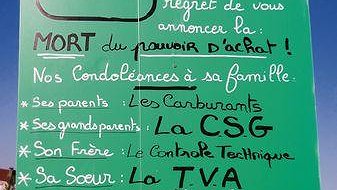 regret de vous
annoncer la :
MORT du pouvoir D'achat !
Nos Condoléances à sa famille.
* Ses parents : Les Carburants
* Ses grands parents : La CSG
* Son Frère : Le Controle Technique
* Sa Sœur : La T.V.A